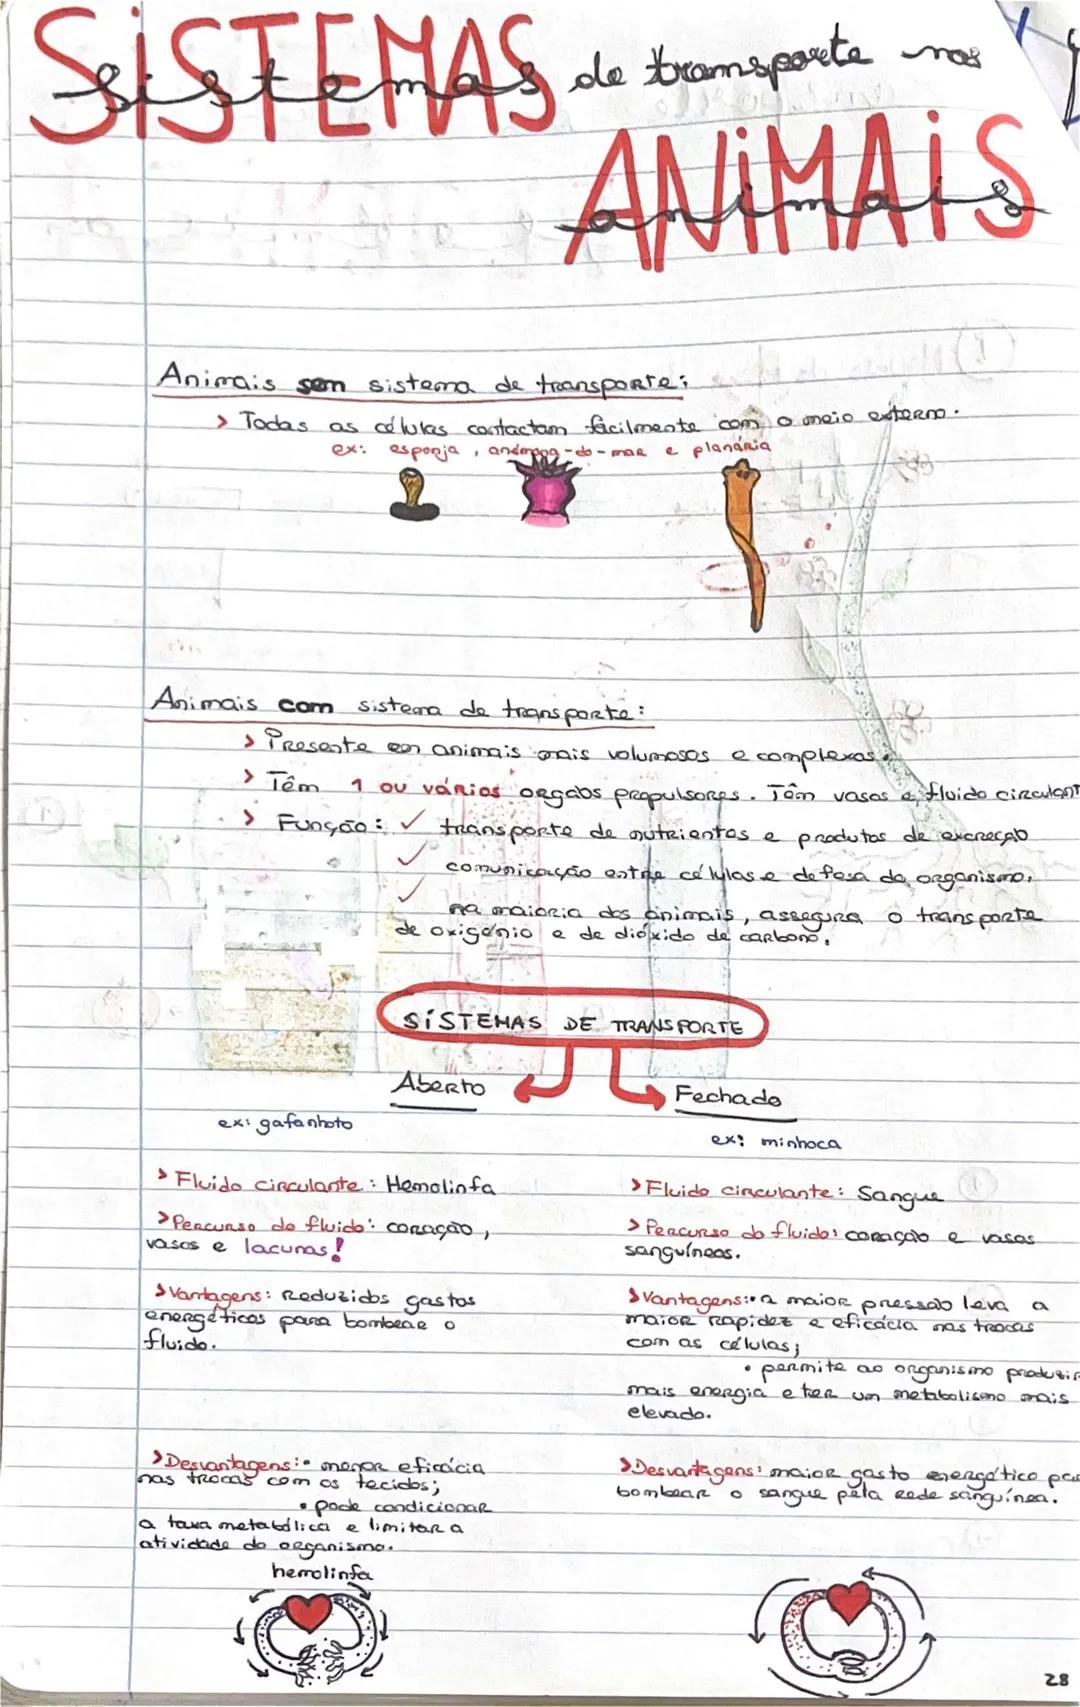 SISTEMAS
sistemas de transporte nos
ANIMAIS
animais
Animais sem sistema de transporte:
> Todas as células contactam facilmente com o meio externo.
ex: esponja, anémona-do-mar e planária
Animais com sistema de transporte:
> Presente em animais mais volumosos e complexos.
> Têm 1 ou vários orgãos propulsores. Têm vasos e fluido circulant
> Função: ✓ transporte de nutrientes e produtos de excreção
✓ comunicação entre células e defesa do organismo.
✓ na maioria dos animais, assegura o transporte
de oxigénio e de dióxido de carbono.
SISTEMAS DE TRANSPORTE
Aberto
ex: gafanhoto
> Fluido circulante: Hemolinfa
> Percurso do fluido: coração,
vasos e lacunas!
> Vantagens: Reduzidos gastos
energéticos para bombear o
fluido.
> Desvantagens: • menor eficácia
nas trocas com os tecidos;
• pode condicionar
a taxa metabólica e limitar a
atividade do organismo.
hemolinfa
Fechado
ex: minhoca
> Fluido circulante: Sangue
> Percurso do fluido: coração e vasos
sanguíneos.
> Vantagens: • a maior pressão leva a
maior rapidez e eficácia nas trocas
com as células;
• permite ao organismo produzir
mais energia e ter um metabolismo mais
elevado.
> Desvantagens: maior gasto energético par
bombear o sangue pela rede sanguínea.
28